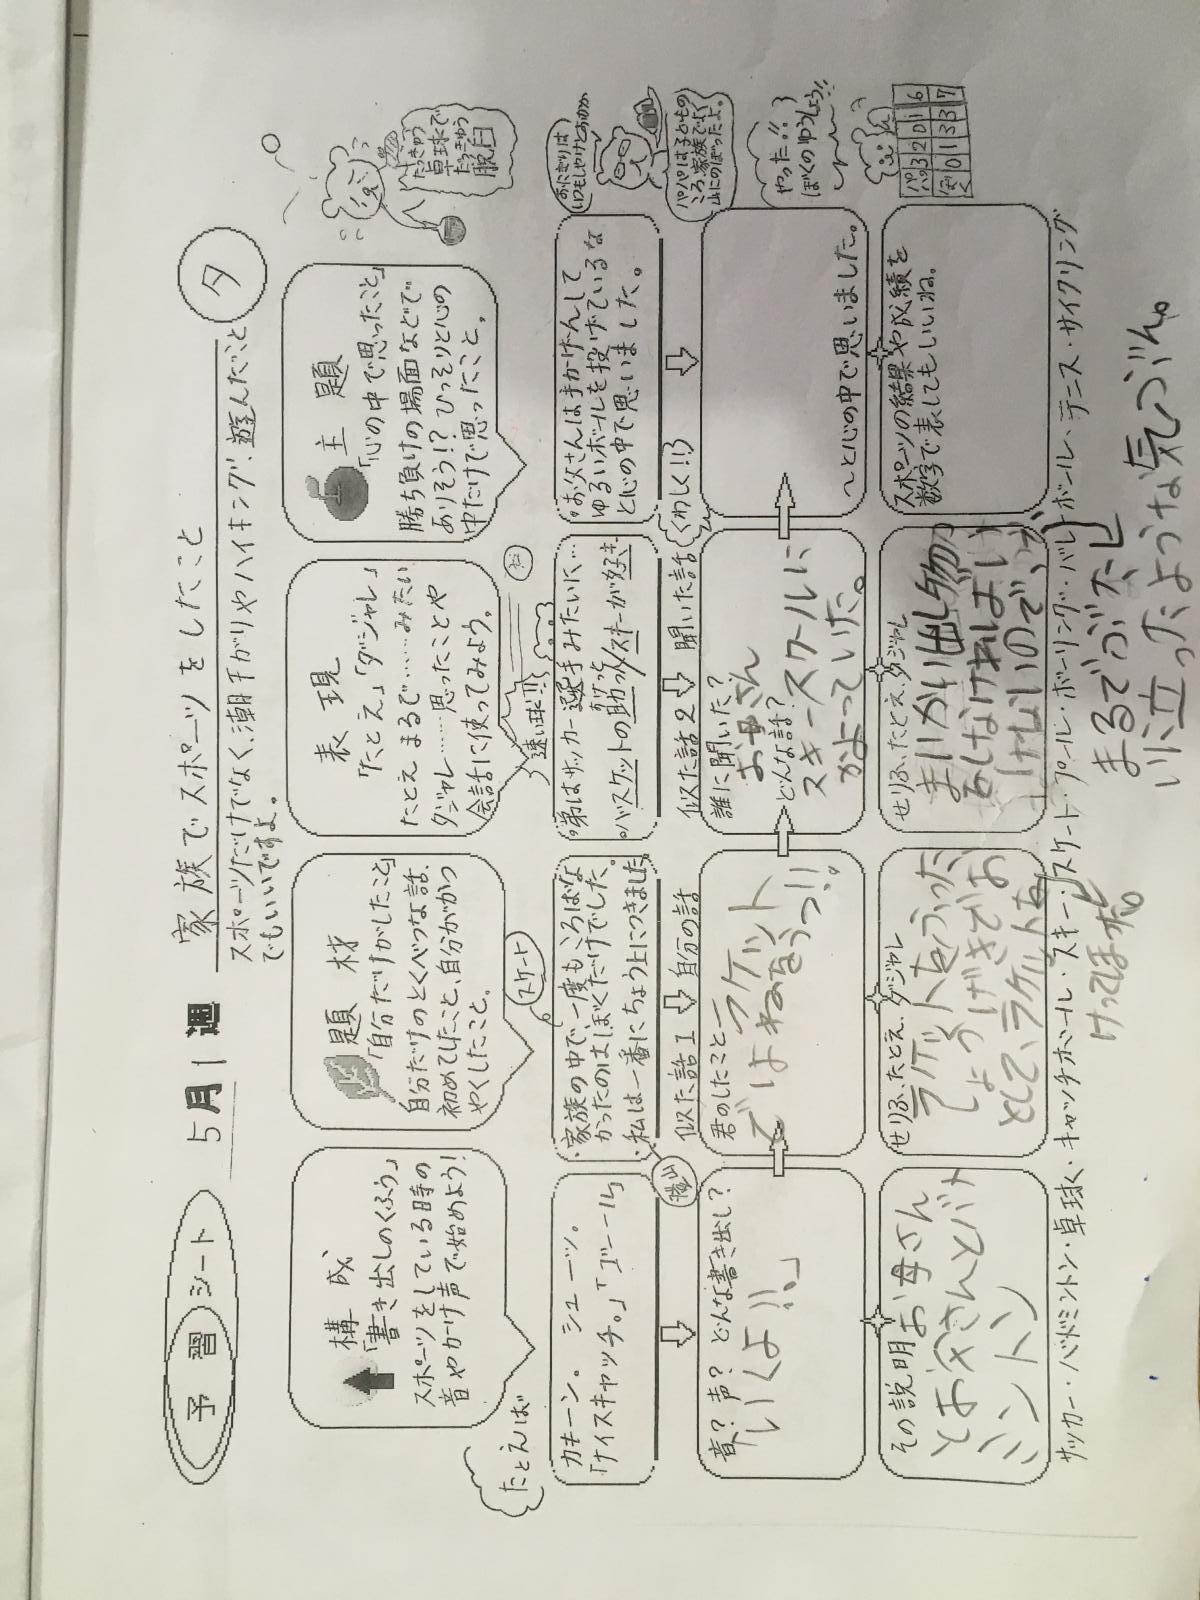 予習シート
5月1週
家族でスポーツをしたこと
タ
スポーツだけでなく、潮干がりやハイキング、遊んだこと
でもいいですよ。
構成
「書き出しのくふう」
スポーツをしている時の
音やかけ声で始めよう!
題材
「自分だけがしたこと」
自分だけのとくべつな話。
初めてしたこと、自分がかつ
やくしたこと。
表現
「たとえ」「ダジャレ」
たとえ まるで……みたい
ダジャレ……思ったことや
会話に使ってみよう。
主題
「心の中で思ったこと」
勝ち負けの場面などで
ありそう!?ひっそりと心の
中だけで思ったこと。
たっきゅう
卓球で
だっきゅう
脱臼
たとえば
カキーン。 シューッ。
「ナイスキャッチ。」「ゴール」
スケート
・家族の中で一度もころばな
かったのはぼくだけでした。
・私は一番にちょう上につきました
登山
速い球!!
・弟はサッカー選手みたいに…
・バスケットの助っ人スキーが好き
・お父さんは手かげんして
ゆるいボールを投げているな
と心の中で思いました。
おにぎりは
いつもしゃけとおかか
似た話1
自分の話
似た話2
聞いた話
くわしく!!
パパは子どもの
ころ、家族でよく
山にのぼったよ。
音?声?どんな書き出し?
いくよ!!」
君のしたこと
ラケット
ではねをうつ!!
誰に聞いた?
お母さん
どんな話?
スキースクールに
かよっていた。
〜と心の中で思いました。
やった!!
ぼくのゆうしょう!!
その説明
お母さん
とお父さんとバド
ミントン
せりふ、たとえ、ダジャレ
ラケットをうった
しょうげきでお
として、ラケットを
けってほす
せりふ、たとえ、ダジャレ
まいかい出し物
をしなければい
けないので、
まるでぶたい
に立ったような気ぶん。
スポーツの結果や成績を
数字で表してもいいね。
パパ 3 2 0 1 6
ぼく 0 1 3 3 7
サッカー・バドミントン・卓球・キャッチボール・スキー・スケート・プール・ボーリング・バレーボール・テニス・サイクリング